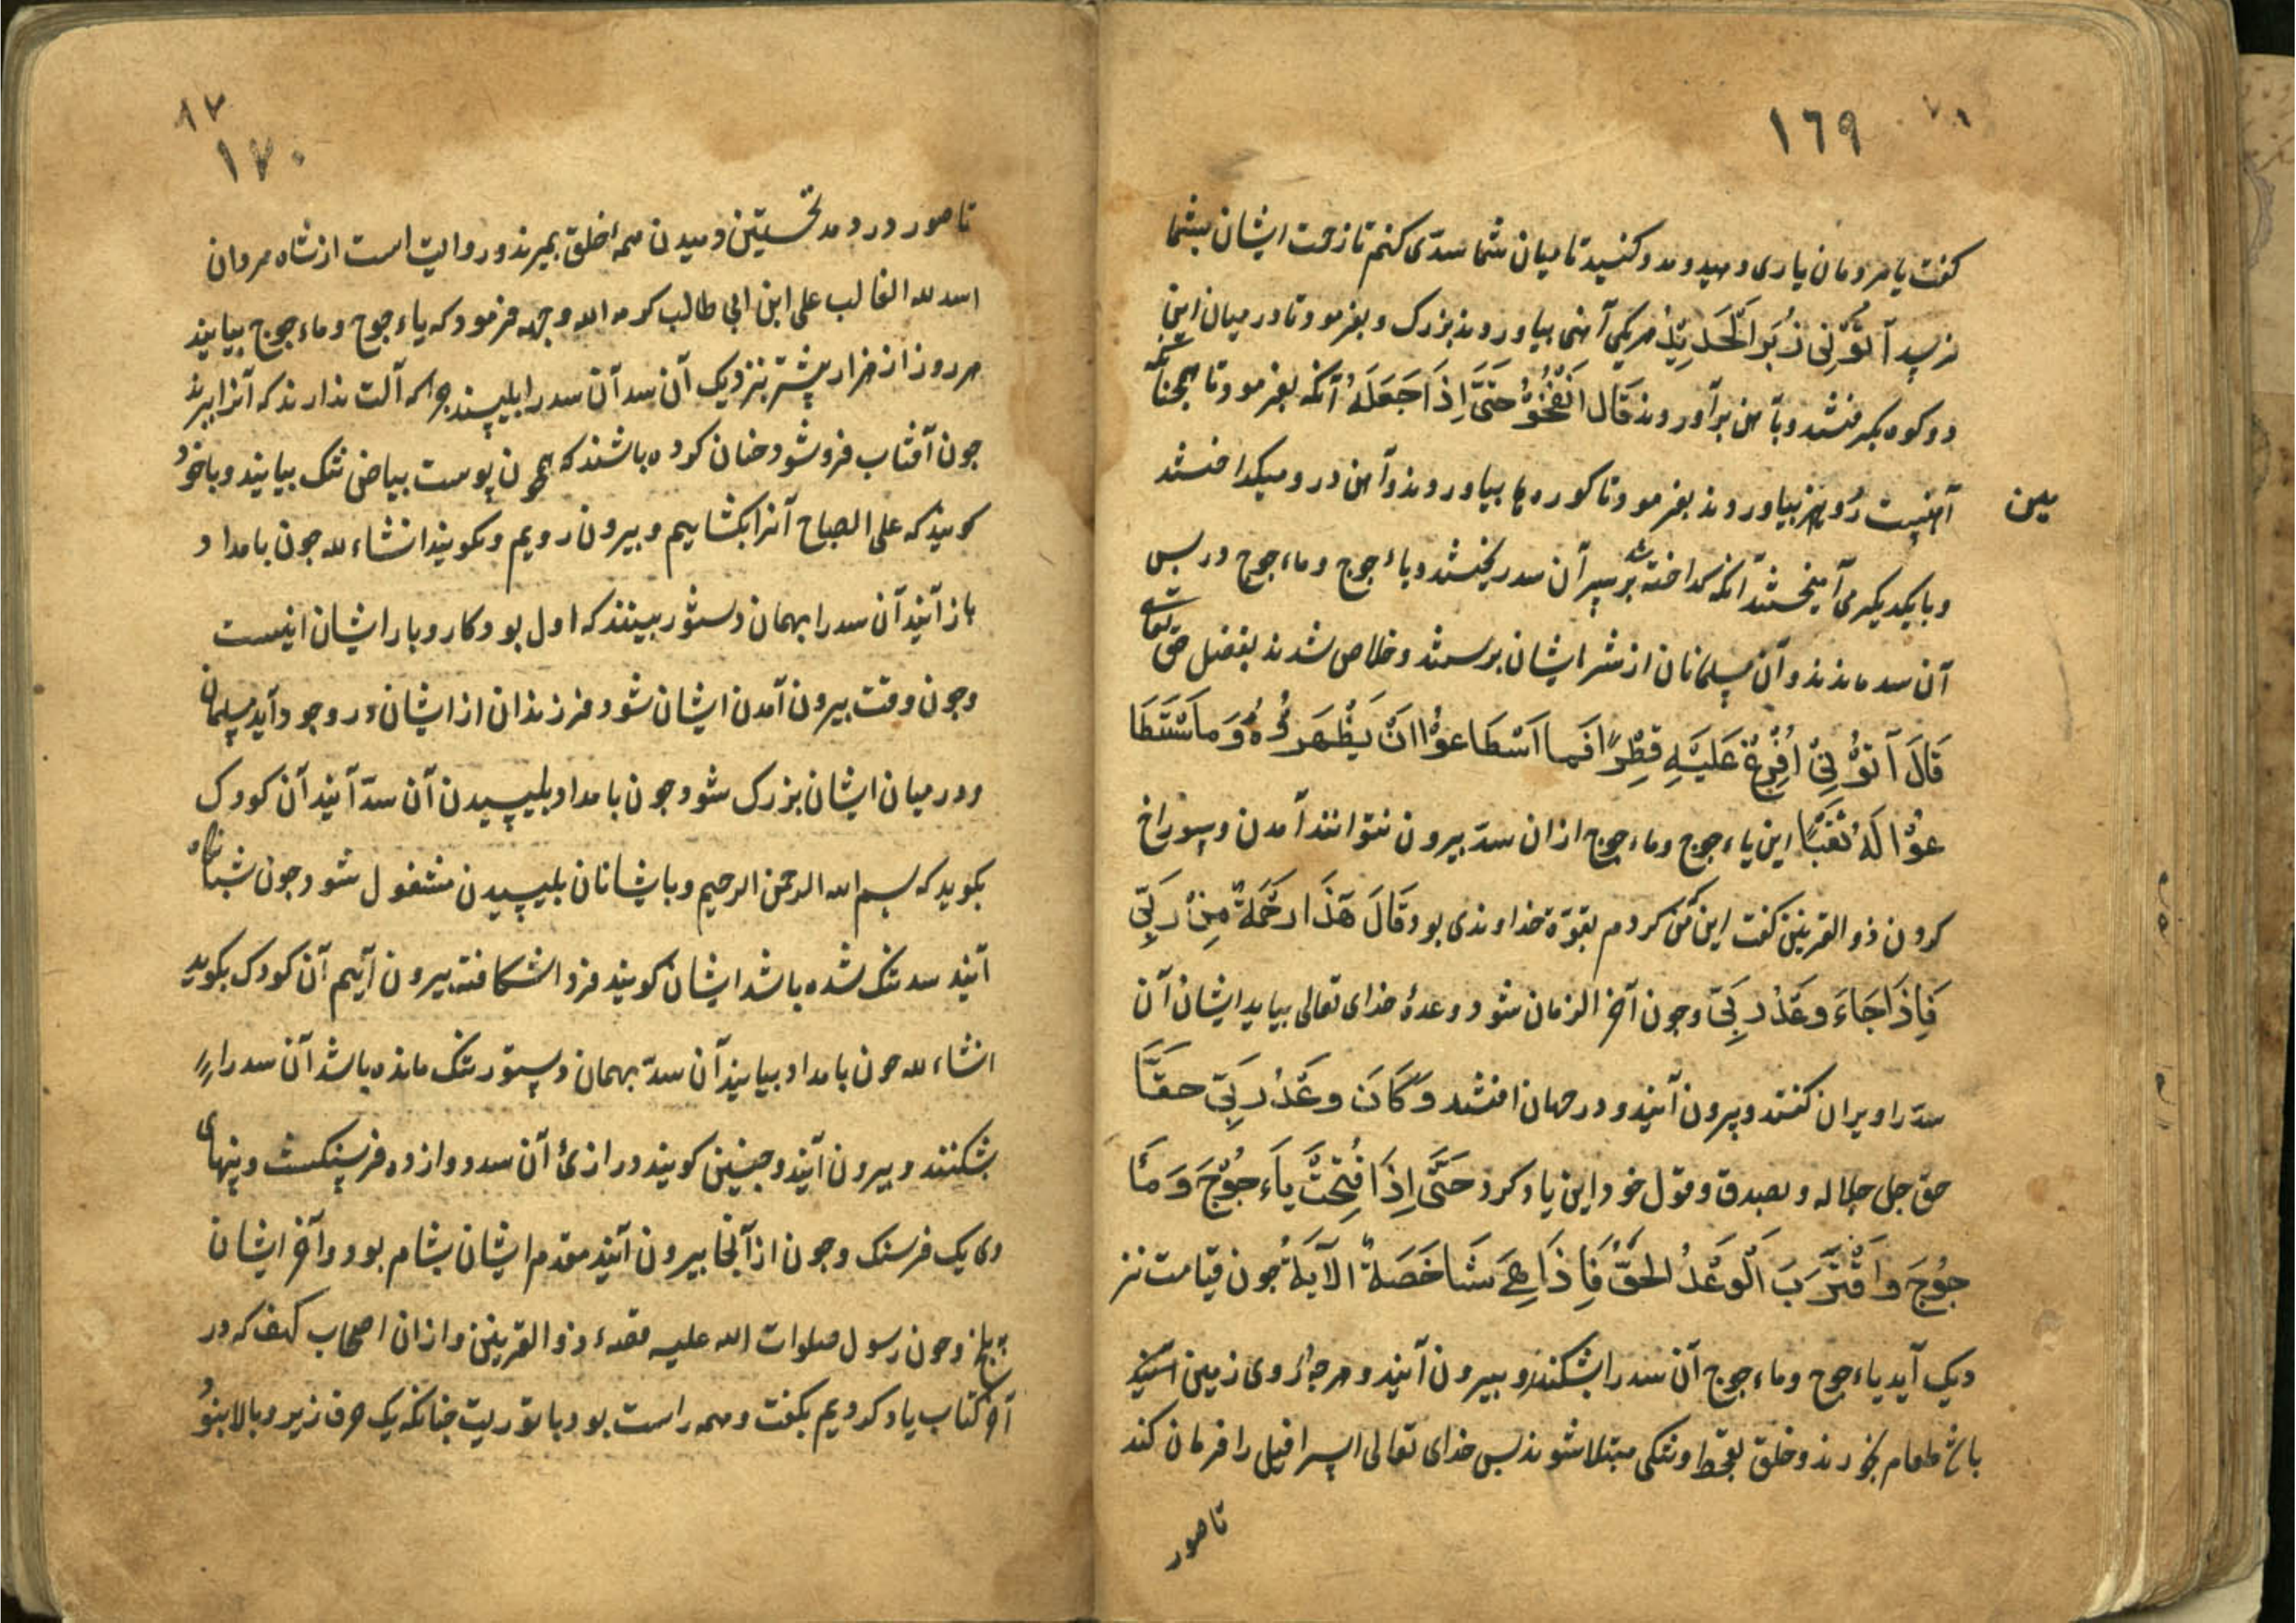 ١٦٩
كفت يا مردمان يارى دهيد و مدد كنيد تا ميان شما سدّى كنم تا زحمت ايشان بشما
نرسد آتُوْنِى زُبَرَ الْحَدِيْدِ هر يكى آهنى بياوردند بزرك و بفرمود تا در ميان اين
دو كوه بكرفتند و بآهن برآوردند قَالَ انْفُخُوْا حَتَّى اِذَا جَعَلَهُ آنكه بفرمود تا همچنانكه
آهنست رُوى نيز بياوردند بفرمود تا كوره ها بياوردند و آهن در و ميكداختند
مين
و با يكديكر مى آميختند آنكه كداخته شد بر سر آن سد ريختند و ياءجوج و ماءجوج در پس
آن سد ماندند و آن مسلمانان از شر ايشان برستند و خلاص شدند بفضل حق تعالى
قَالَ آتُوْنِىْ اُفْرِغْ عَلَيْهِ قِطْرًا فَمَا اَسْطَاعُوْا اَنْ يَظْهَرُوْهُ وَمَا اَسْتَطَا
عُوْا لَهُ نَقْبًا اين ياءجوج و ماءجوج از ان سد بيرون نتوانند آمدن و سوراخ
كردن ذو القرنين كفت اين كه من كردم بقوّة خداوندى بود قَالَ هَذَا رَحْمَةٌ مِنْ رَبِّى
فَاِذَا جَاءَ وَعْدُ رَبِّى و جون آخر الزمان شود وعدهٔ خداى تعالى بيايد ايشان آن
سدّ را ويران كنند و بيرون آيند و در جهان افتند وَكَانَ وَعْدُ رَبِّى حَقًّا
حق جل جلاله و بصدق و قول خود اين ياد كرد حَتَّى اِذَا فُتِحَتْ يَاءجُوْجَ وَمَاْ
جُوْجَ وَاَقْتَرَبَ الْوَعْدُ الْحَقُّ فَاِذَا هِىَ شَاخِصَةٌ الْآيَةُ جون قيامت نز
ديك آيد ياءجوج و ماءجوج آن سد را بشكنند و بيرون آيند و هرچه بر روى زمين
طعام بخورند و خلق بقحط و تنكى مبتلا شوند پس خداى تعالى اسرافيل را فرمان كند
تا صور
٨٢
١٧٠
تا صور در دمد نخستين دميدن همهٔ خلق بميرند و روايت است از شاه مردان
اسد لله الغالب على ابن ابى طالب كرمه الله وجهه فرمود كه ياءجوج و ماءجوج بيايند
هر روز از هزار بيشتر بنزديك آن سد آن سد را بليسند جرا كه آلت ندارند كه آنرا ببرند
جون آفتاب فرو شود جنان كرده باشند كه همچون پوست بياضى تنك بيايند و با خود
كويند كه على الصباح آنرا بكشاييم و بيرون رويم و نكويند انشاء لله جون بامداد
باز آيند آن سد را بهمان دستور ببينند كه اول بود كار و بار ايشان اينست
و جون وقت بيرون آمدن ايشان شود فرزندان از ايشان در وجود آيد مسلمان
و در ميان ايشان بزرك شود جون بامداد بليسيدن آن سدّ آيند آن كودك
بكويد كه بسم الله الرحمن الرحيم و با ايشان بليسيدن مشغول شود جون شبانكاه
آيند سد تنك شده باشد ايشان كويند فردا شكافته بيرون آييم آن كودك بكويد
انشاء لله جون بامداد بيايند آن سدّ بهمان دستور تنك مانده باشد آن سد را
بشكنند و بيرون آيند و جنين كويند درازئ آن سد دوازده فرسنكست و پهناى
وى يك فرسنك و جون از آنجا بيرون آيند مقدم ايشان بشام بود و آخر ايشان
ببلخ و جون رسول صلوات الله عليه قصهٔ ذو القرنين و از ان اصحاب كهف كه در
آخر كتاب ياد كرديم بكفت و همه راست بود با توريت جنانكه يك حرف زير و بالا نبود